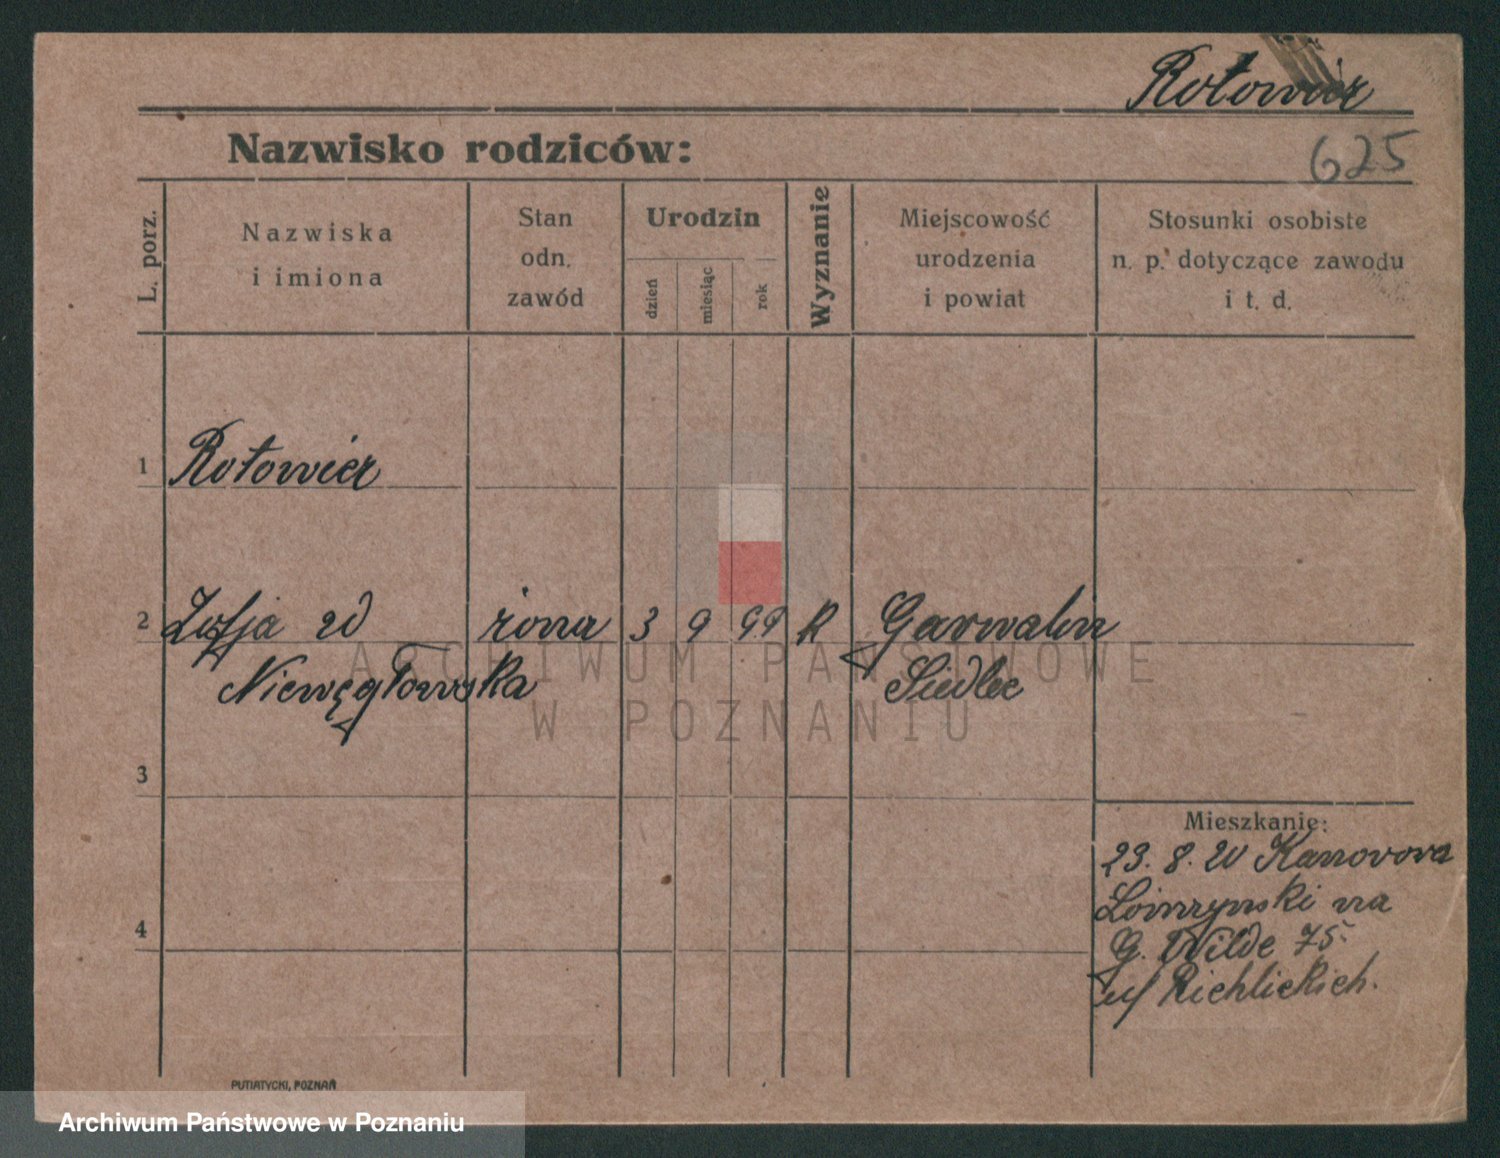 Rotowier
625
Nazwisko rodziców:
L. porz.
Nazwiska
i imiona
Stan
odn.
zawód
Urodzin
dzień
miesiąc
rok
Wyznanie
Miejscowość
urodzenia
i powiat
Stosunki osobiste
n. p. dotyczące zawodu
i t. d.
1 Rotowier
2 Zofja żona 3 9 99 R Garwolin
Niewęgłowska Siedlce
ARCHIWUM PAŃSTWOWE
W POZNANIU
3
Mieszkanie:
23. 8. 20
na
4
G. Wilde 75
Richlickich.
PUTIATYCKI, POZNAŃ
Archiwum Państwowe w Poznaniu